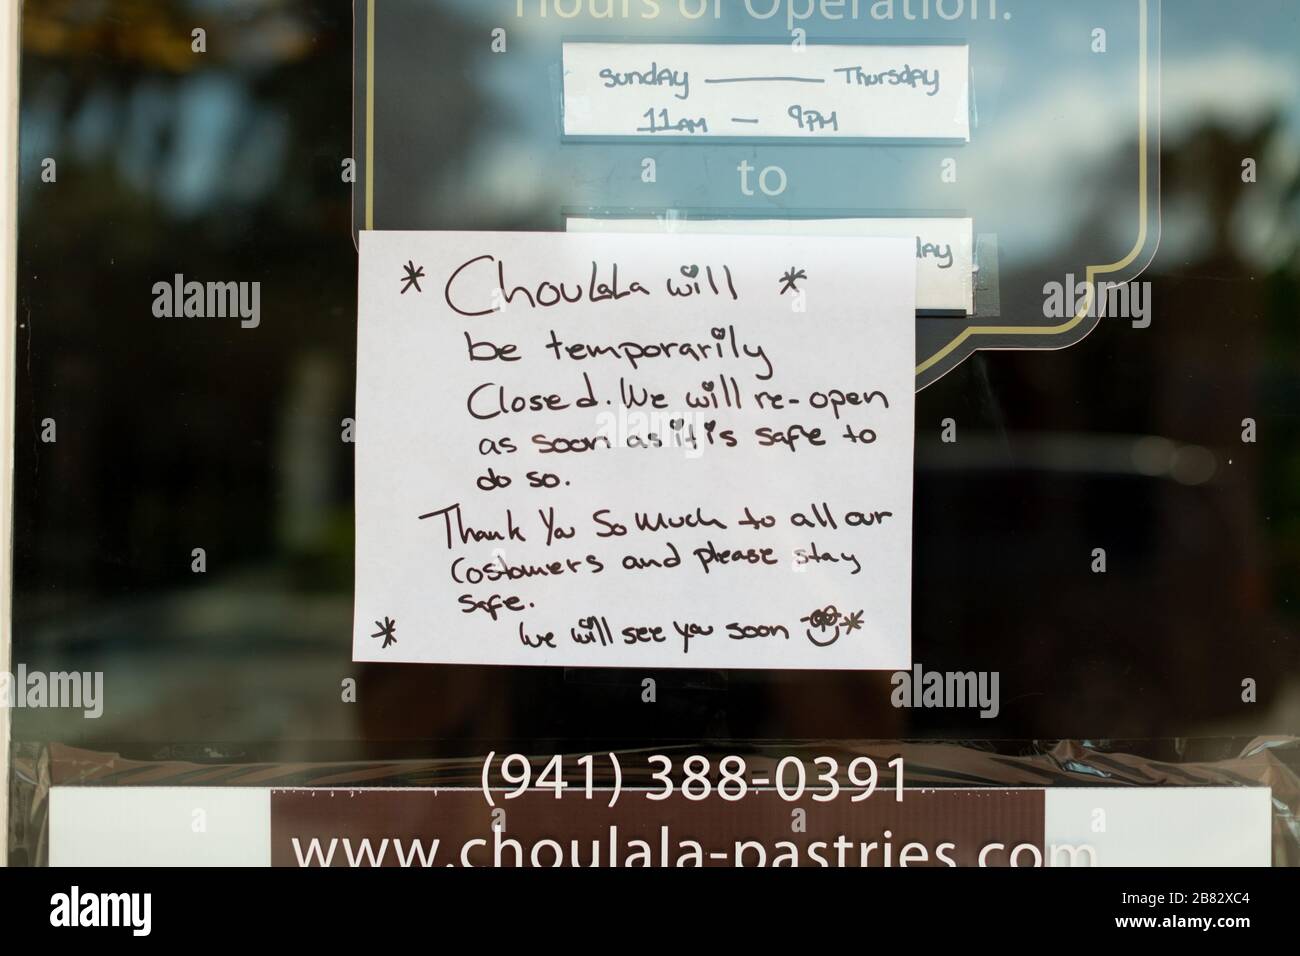 Hours of Operation:
Sunday — Thursday
11AM — 9PM
to
day
* Choulala will *
be temporarily
Closed. We will re-open
as soon as it is safe to
do so.
Thank You So Much to all our
Costomers and please stay
safe.
* We will see you soon *
(941) 388-0391
www.choulala-pastries.com
alamy
alamy
Image ID: 2B82XC4
www.alamy.com